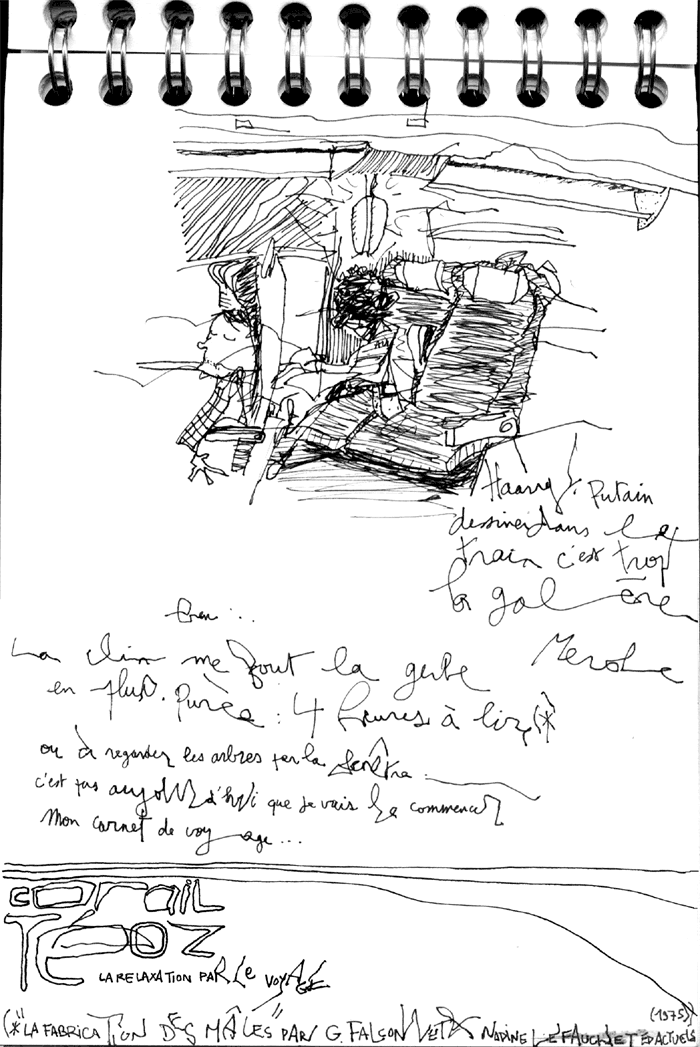 Putain
dessiner dans le
train c'est trop
la galère
La clim me fout la gerbe
en plus. Purée : 4 heures à lire(*
ou à regarder les arbres par la fenêtre.
c'est pas aujourd'hui que je vais le commencer
mon carnet de voyage...
corail
Téoz
LA RELAXATION PAR LE VOYAGE
(1975)
(*"LA FABRICATION DES MÂLES" PAR G. FALCONNET & NADINE ED ACTUELS